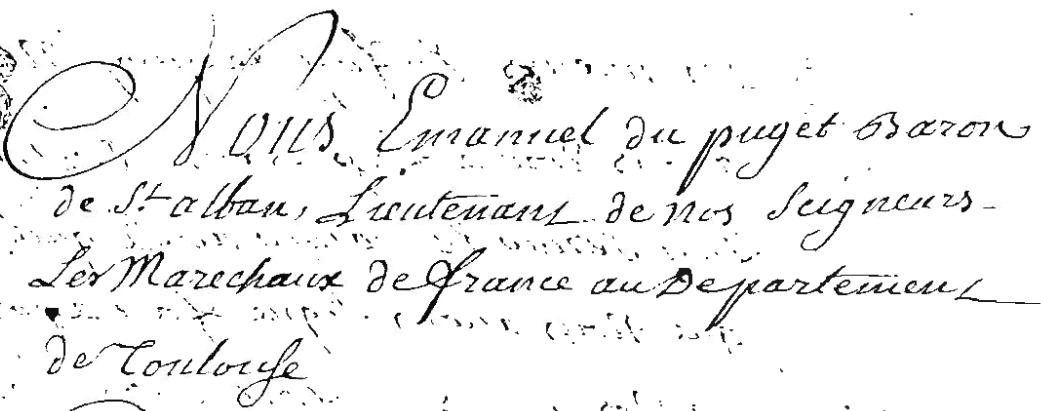 Nous Emanuel du puget Baron
de St alban, Lieutenant de nos Seigneurs
Les Marechaux de france au Departement
de Toulouse